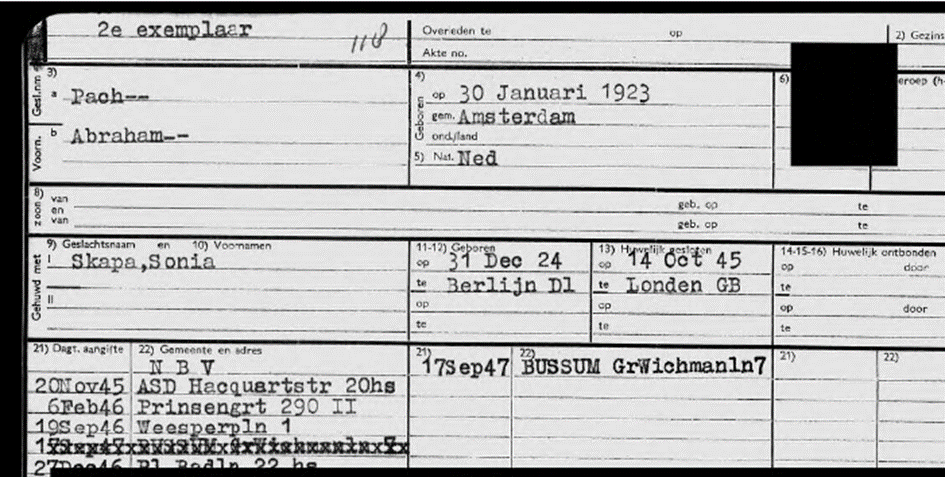 2e exemplaar
118
Overleden te op
Akte no.
2) Gezins
3)
Gesl.nm
a Pach--
Voorn.
b Abraham--
4)
Geboren
op 30 Januari 1923
gem. Amsterdam
ond./land
5) Nat. Ned
6)
eroep (h-
8)
zoon
van
en
van
geb. op te
geb. op te
9) Geslachtsnaam en 10) Voornamen
Gehuwd met
I Skapa,Sonia
II
11-12) Geboren
op 31 Dec 24
te Berlijn Dl
op
te
13) Huwelijk gesloten
op 14 Oct 45
te Londen GB
op
te
14-15-16) Huwelijk ontbonden
op door
te
op door
te
21) Dagt. aangifte 22) Gemeente en adres
N B V
20Nov45 ASD Hacquartstr 20hs
6Feb46 Prinsengrt 290 II
19Sep46 Weesperpln 1
27Dec46 Pl Badln 22 hs
21) 22)
17Sep47 BUSSUM GrWichmanln7
21) 22)